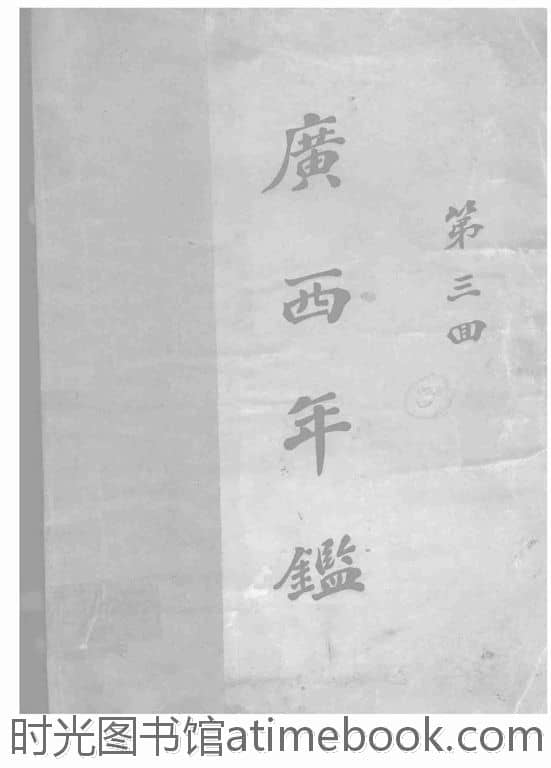 第三回
廣西年鑑
时光图书馆atimebook.com